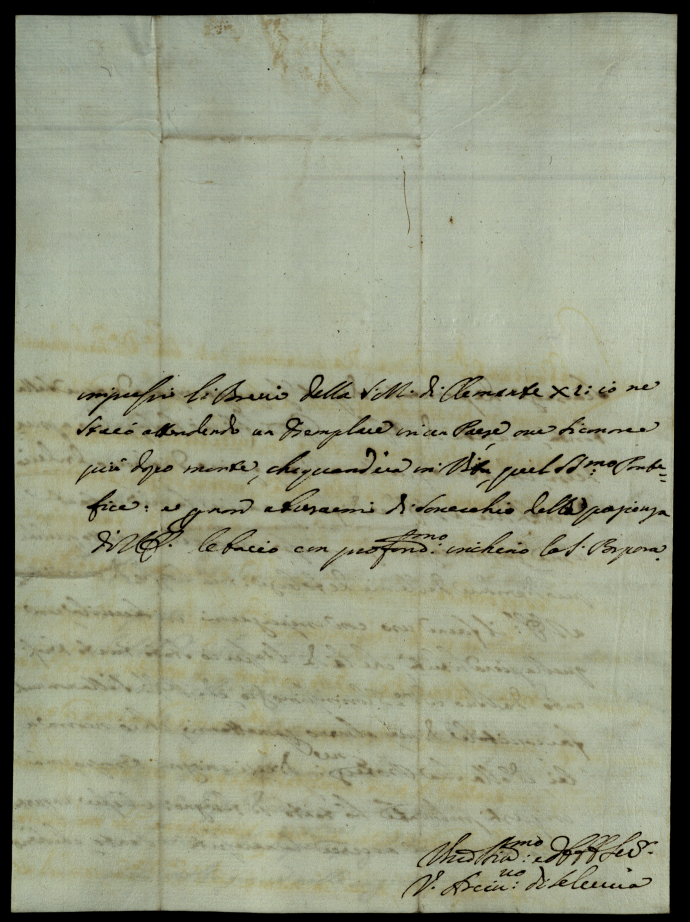 impressi li Brevi della S. M. di Clemente XI: io ne
starò attendendo un Esemplare in un Paese, ove si onora
più dopo morte, che quand'era in Vita, quel SS.mo Ponte=
fice: e p non abusarmi di soverchio della pazienza
di V. E. le bacio con profond.mo inchino la S. Porpora.
Um.mo e
V. Arciv.vo di